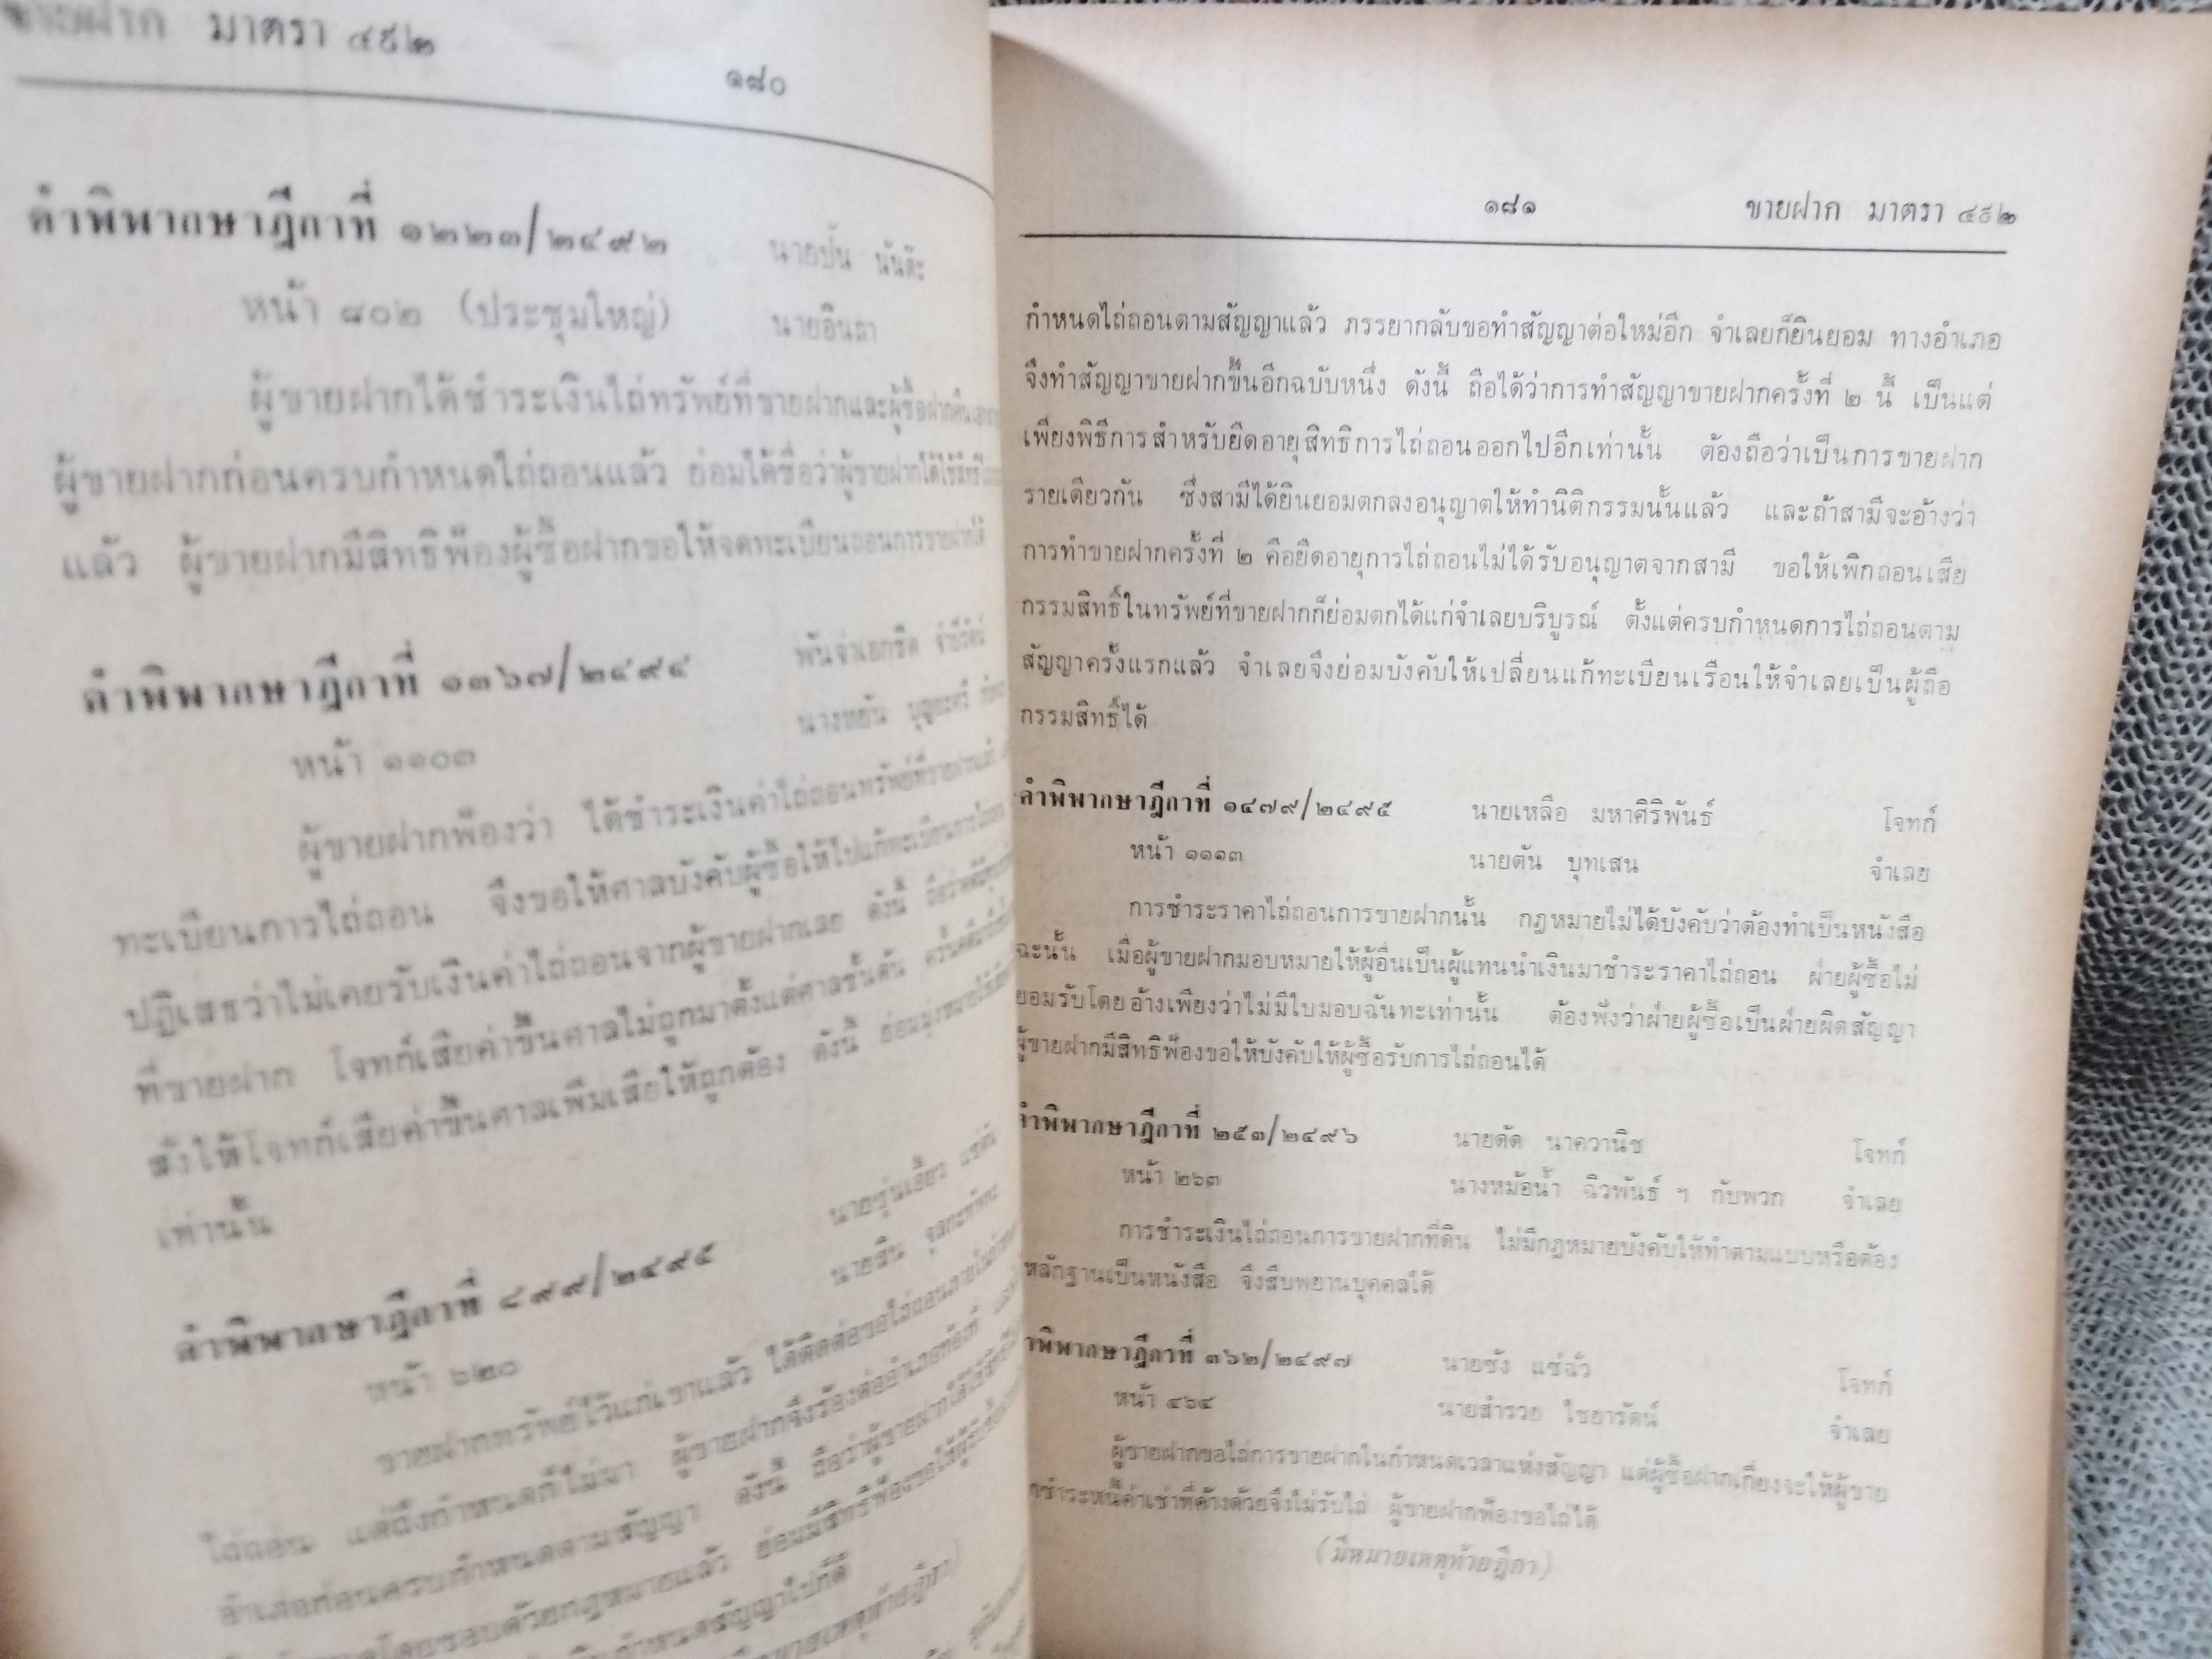 ขายฝาก มาตรา ๔๙๒
๑๘๐
คำพิพากษาฎีกาที่ ๑๒๒๓/๒๔๙๒ นายปั๋น นันต๊ะ
หน้า ๘๐๒ (ประชุมใหญ่) นายอินถา
ผู้ขายฝากได้ชำระเงินไถ่ทรัพย์ที่ขายฝากและผู้ซื้อฝาก
ผู้ขายฝากก่อนครบกำหนดไถ่ถอนแล้ว ย่อมได้ชื่อว่าผู้ขายฝากได้ใช้สิทธิ
แล้ว ผู้ขายฝากมีสิทธิฟ้องผู้ซื้อฝากขอให้จดทะเบียนถอนการขายฝากได้
คำพิพากษาฎีกาที่ ๑๓๖๗/๒๔๙๔ พันจ่าเอก
หน้า ๑๑๐๓
ผู้ขายฝากฟ้องว่า ได้ชำระเงินค่าไถ่ถอนทรัพย์ที่ขายฝากแล้ว
ทะเบียนการไถ่ถอน จึงขอให้ศาลบังคับผู้ซื้อให้ไปแก้ทะเบียนการไถ่ถอน
ปฏิเสธว่าไม่เคยรับเงินค่าไถ่ถอนจากผู้ขายฝากเลย ดังนี้ ถือว่าคดีมีทุนทรัพย์
ที่ขายฝาก โจทก์เสียค่าขึ้นศาลไม่ถูกมาตั้งแต่ศาลชั้นต้น
สั่งให้โจทก์เสียค่าขึ้นศาลเพิ่มเสียให้ถูกต้อง ดังนี้ ย่อมมุ่งหมาย
เท่านั้น
คำพิพากษาฎีกาที่ ๘๙๙/๒๔๙๕
หน้า ๖๒๐
ขายฝากทรัพย์ไว้แก่เขาแล้ว ได้ติดต่อขอไถ่ถอนภายใน
ไถ่ถอน แต่ถึงกำหนดก็ไม่มา ผู้ขายฝากจึงร้องต่ออำเภอท้องที่
อำเภอก่อนครบกำหนดตามสัญญา ดังนี้ ถือว่าผู้ขายฝากได้ใช้สิทธิ
โดยชอบด้วยกฎหมายแล้ว ย่อมมีสิทธิฟ้องขอให้ผู้รับซื้อ
กำหนดสัญญาไปก็ดี
๑๘๑ ขายฝาก มาตรา ๔๙๒
กำหนดไถ่ถอนตามสัญญาแล้ว ภรรยากลับขอทำสัญญาต่อใหม่อีก จำเลยก็ยินยอม ทางอำเภอ
จึงทำสัญญาขายฝากขึ้นอีกฉบับหนึ่ง ดังนี้ ถือได้ว่าการทำสัญญาขายฝากครั้งที่ ๒ นี้ เป็นแต่
เพียงพิธีการสำหรับยืดอายุสิทธิการไถ่ถอนออกไปอีกเท่านั้น ต้องถือว่าเป็นการขายฝาก
รายเดียวกัน ซึ่งสามีได้ยินยอมตกลงอนุญาตให้ทำนิติกรรมนั้นแล้ว และถ้าสามีจะอ้างว่า
การทำขายฝากครั้งที่ ๒ คือยืดอายุการไถ่ถอนไม่ได้รับอนุญาตจากสามี ขอให้เพิกถอนเสีย
กรรมสิทธิ์ในทรัพย์ที่ขายฝากก็ย่อมตกได้แก่จำเลยบริบูรณ์ ตั้งแต่ครบกำหนดการไถ่ถอนตาม
สัญญาครั้งแรกแล้ว จำเลยจึงย่อมบังคับให้เปลี่ยนแก้ทะเบียนเรือนให้จำเลยเป็นผู้ถือ
กรรมสิทธิ์ได้
คำพิพากษาฎีกาที่ ๑๔๗๙/๒๔๙๕ นายเหลือ มหาศิริพันธ์ โจทก์
หน้า ๑๑๑๓ นายตัน บุทเสน จำเลย
การชำระราคาไถ่ถอนการขายฝากนั้น กฎหมายไม่ได้บังคับว่าต้องทำเป็นหนังสือ
ฉะนั้น เมื่อผู้ขายฝากมอบหมายให้ผู้อื่นเป็นผู้แทนนำเงินมาชำระราคาไถ่ถอน ฝ่ายผู้ซื้อไม่
ยอมรับโดยอ้างเพียงว่าไม่มีใบมอบฉันทะเท่านั้น ต้องฟังว่าฝ่ายผู้ซื้อเป็นฝ่ายผิดสัญญา
ผู้ขายฝากมีสิทธิฟ้องขอให้บังคับให้ผู้ซื้อรับการไถ่ถอนได้
คำพิพากษาฎีกาที่ ๒๕๓/๒๔๙๖ นายดัด นาควานิช โจทก์
หน้า ๒๖๓ นางหม้อน้ำ ฉิวพันธ์ ฯ กับพวก จำเลย
การชำระเงินไถ่ถอนการขายฝากที่ดิน ไม่มีกฎหมายบังคับให้ทำตามแบบหรือต้อง
หลักฐานเป็นหนังสือ จึงสืบพยานบุคคลได้
คำพิพากษาฎีกาที่ ๓๖๒/๒๔๙๗ นายซัง แซ่ฉั่ว โจทก์
หน้า ๔๖๔ นายสำรวย ไชยารัตน์ จำเลย
ผู้ขายฝากขอไถ่การขายฝากในกำหนดเวลาแห่งสัญญา แต่ผู้ซื้อฝากเกี่ยงจะให้ผู้ขาย
ชำระหนี้ค่าเช่าที่ค้างด้วยจึงไม่รับไถ่ ผู้ขายฝากฟ้องขอไถ่ได้
(มีหมายเหตุท้ายฎีกา)